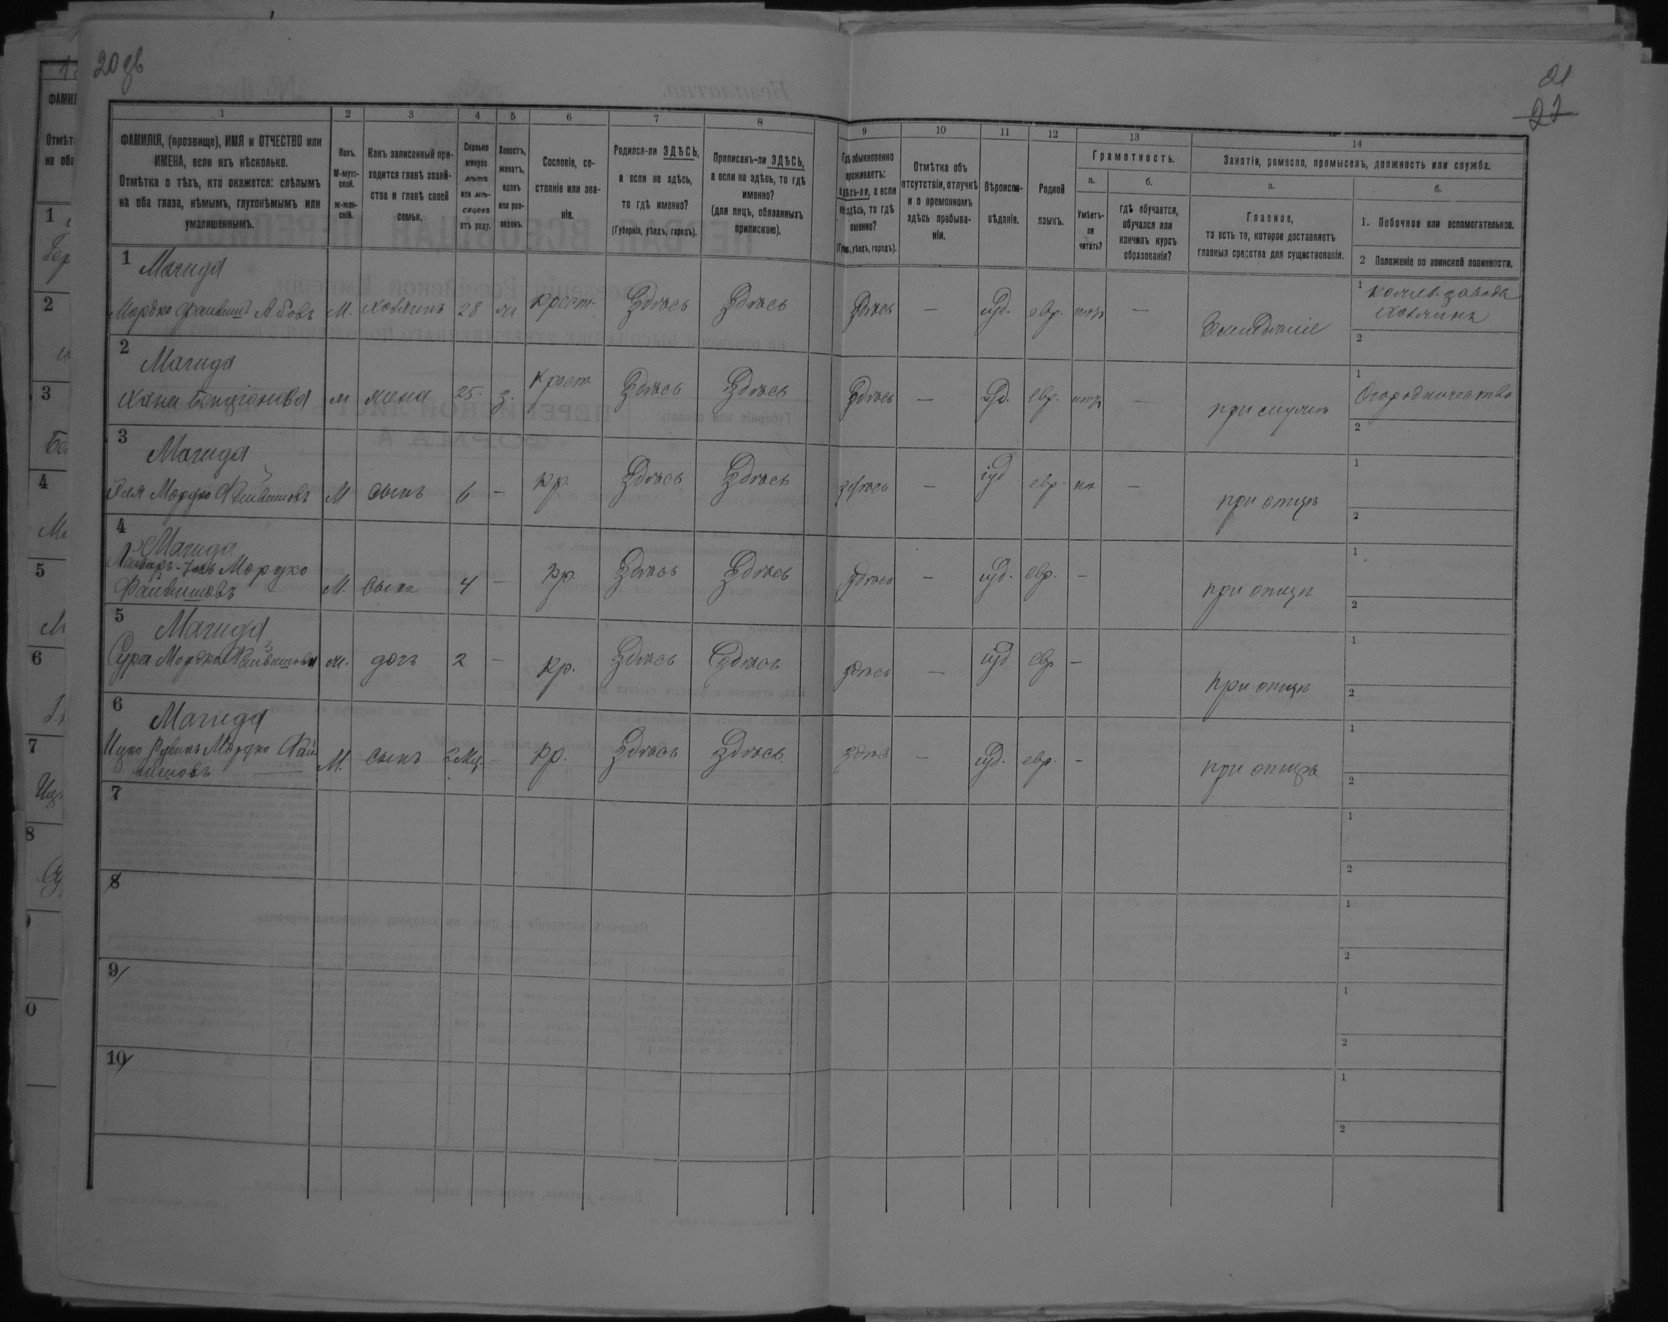 20 об
21
22
1 2 3 4 5 6 7 8 9 10 11 12 13 14
ФАМИЛІЯ, (прозвище), ИМЯ и ОТЧЕСТВО или
ИМЕНА, если ихъ нѣсколько.
Отмѣтка о тѣхъ, кто окажется: слѣпымъ
на оба глаза, нѣмымъ, глухонѣмымъ или
умалишеннымъ.
Полъ.
М-мужской.
ж-женскій.
Какъ записанный при-
ходится главѣ хозяй-
ства и главѣ своей
семьи.
Сколько
минуло
лѣтъ
или мѣ-
сяцевъ
отъ роду.
Холостъ,
женатъ,
вдовъ
или раз-
веденъ.
Сословіе, со-
стояніе или зва-
ніе.
Родился-ли ЗДѢСЬ,
а если не здѣсь,
то гдѣ именно?
(Губернія, уѣздъ, городъ).
Приписанъ-ли ЗДѢСЬ,
а если не здѣсь, то гдѣ
именно?
(для лицъ, обязанныхъ
припискою).
Гдѣ обыкновенно
проживаетъ:
здѣсь-ли, а если
не здѣсь, то гдѣ
именно?
(Губ., уѣздъ, городъ).
Отмѣтка объ
отсутствіи, отлучкѣ
и о временномъ
здѣсь пребыва-
ніи.
Вѣроиспо-
вѣданіе.
Родной
языкъ.
Грамотность.
а.
Умѣетъ-
ли
читать?
б.
Гдѣ обучается,
обучался или
кончилъ курсъ
образованія?
Занятія, ремесло, промыселъ, должность или служба.
а.
Главное,
то есть то, которое доставляетъ
главныя средства для существованія.
б.
1. Побочное или вспомогательное.
2 Положеніе по воинской повинности.
1 Магида
Мордко М. хозяинъ 28 крест. Здѣсь Здѣсь Здѣсь — іуд. евр. —
1 хозяинъ
2
2 Магида
жена 25 з. крест. Здѣсь Здѣсь Здѣсь — іуд. евр. —
1 Огородничество
2
3 Магида
Мордко Файвишовъ М сынъ 6 — кр. Здѣсь Здѣсь здѣсь — іуд евр. — при отцѣ
1
2
4 Магида
Мордко
Файвишовъ М. сынъ 4 — кр. Здѣсь Здѣсь здѣсь — іуд. евр. — при отцѣ
1
2
5 Магида
Сура Мордко Файвишова ж. дочь 2 — кр. Здѣсь Здѣсь здѣсь — іуд евр — при отцѣ
1
2
6 Магида
Ицко Рувинъ Мордко Фай
вишовъ М. сынъ 2 мц. — кр. Здѣсь Здѣсь здѣсь — іуд. евр. — при отцѣ
1
2
7
1
2
8
1
2
9
1
2
10
1
2